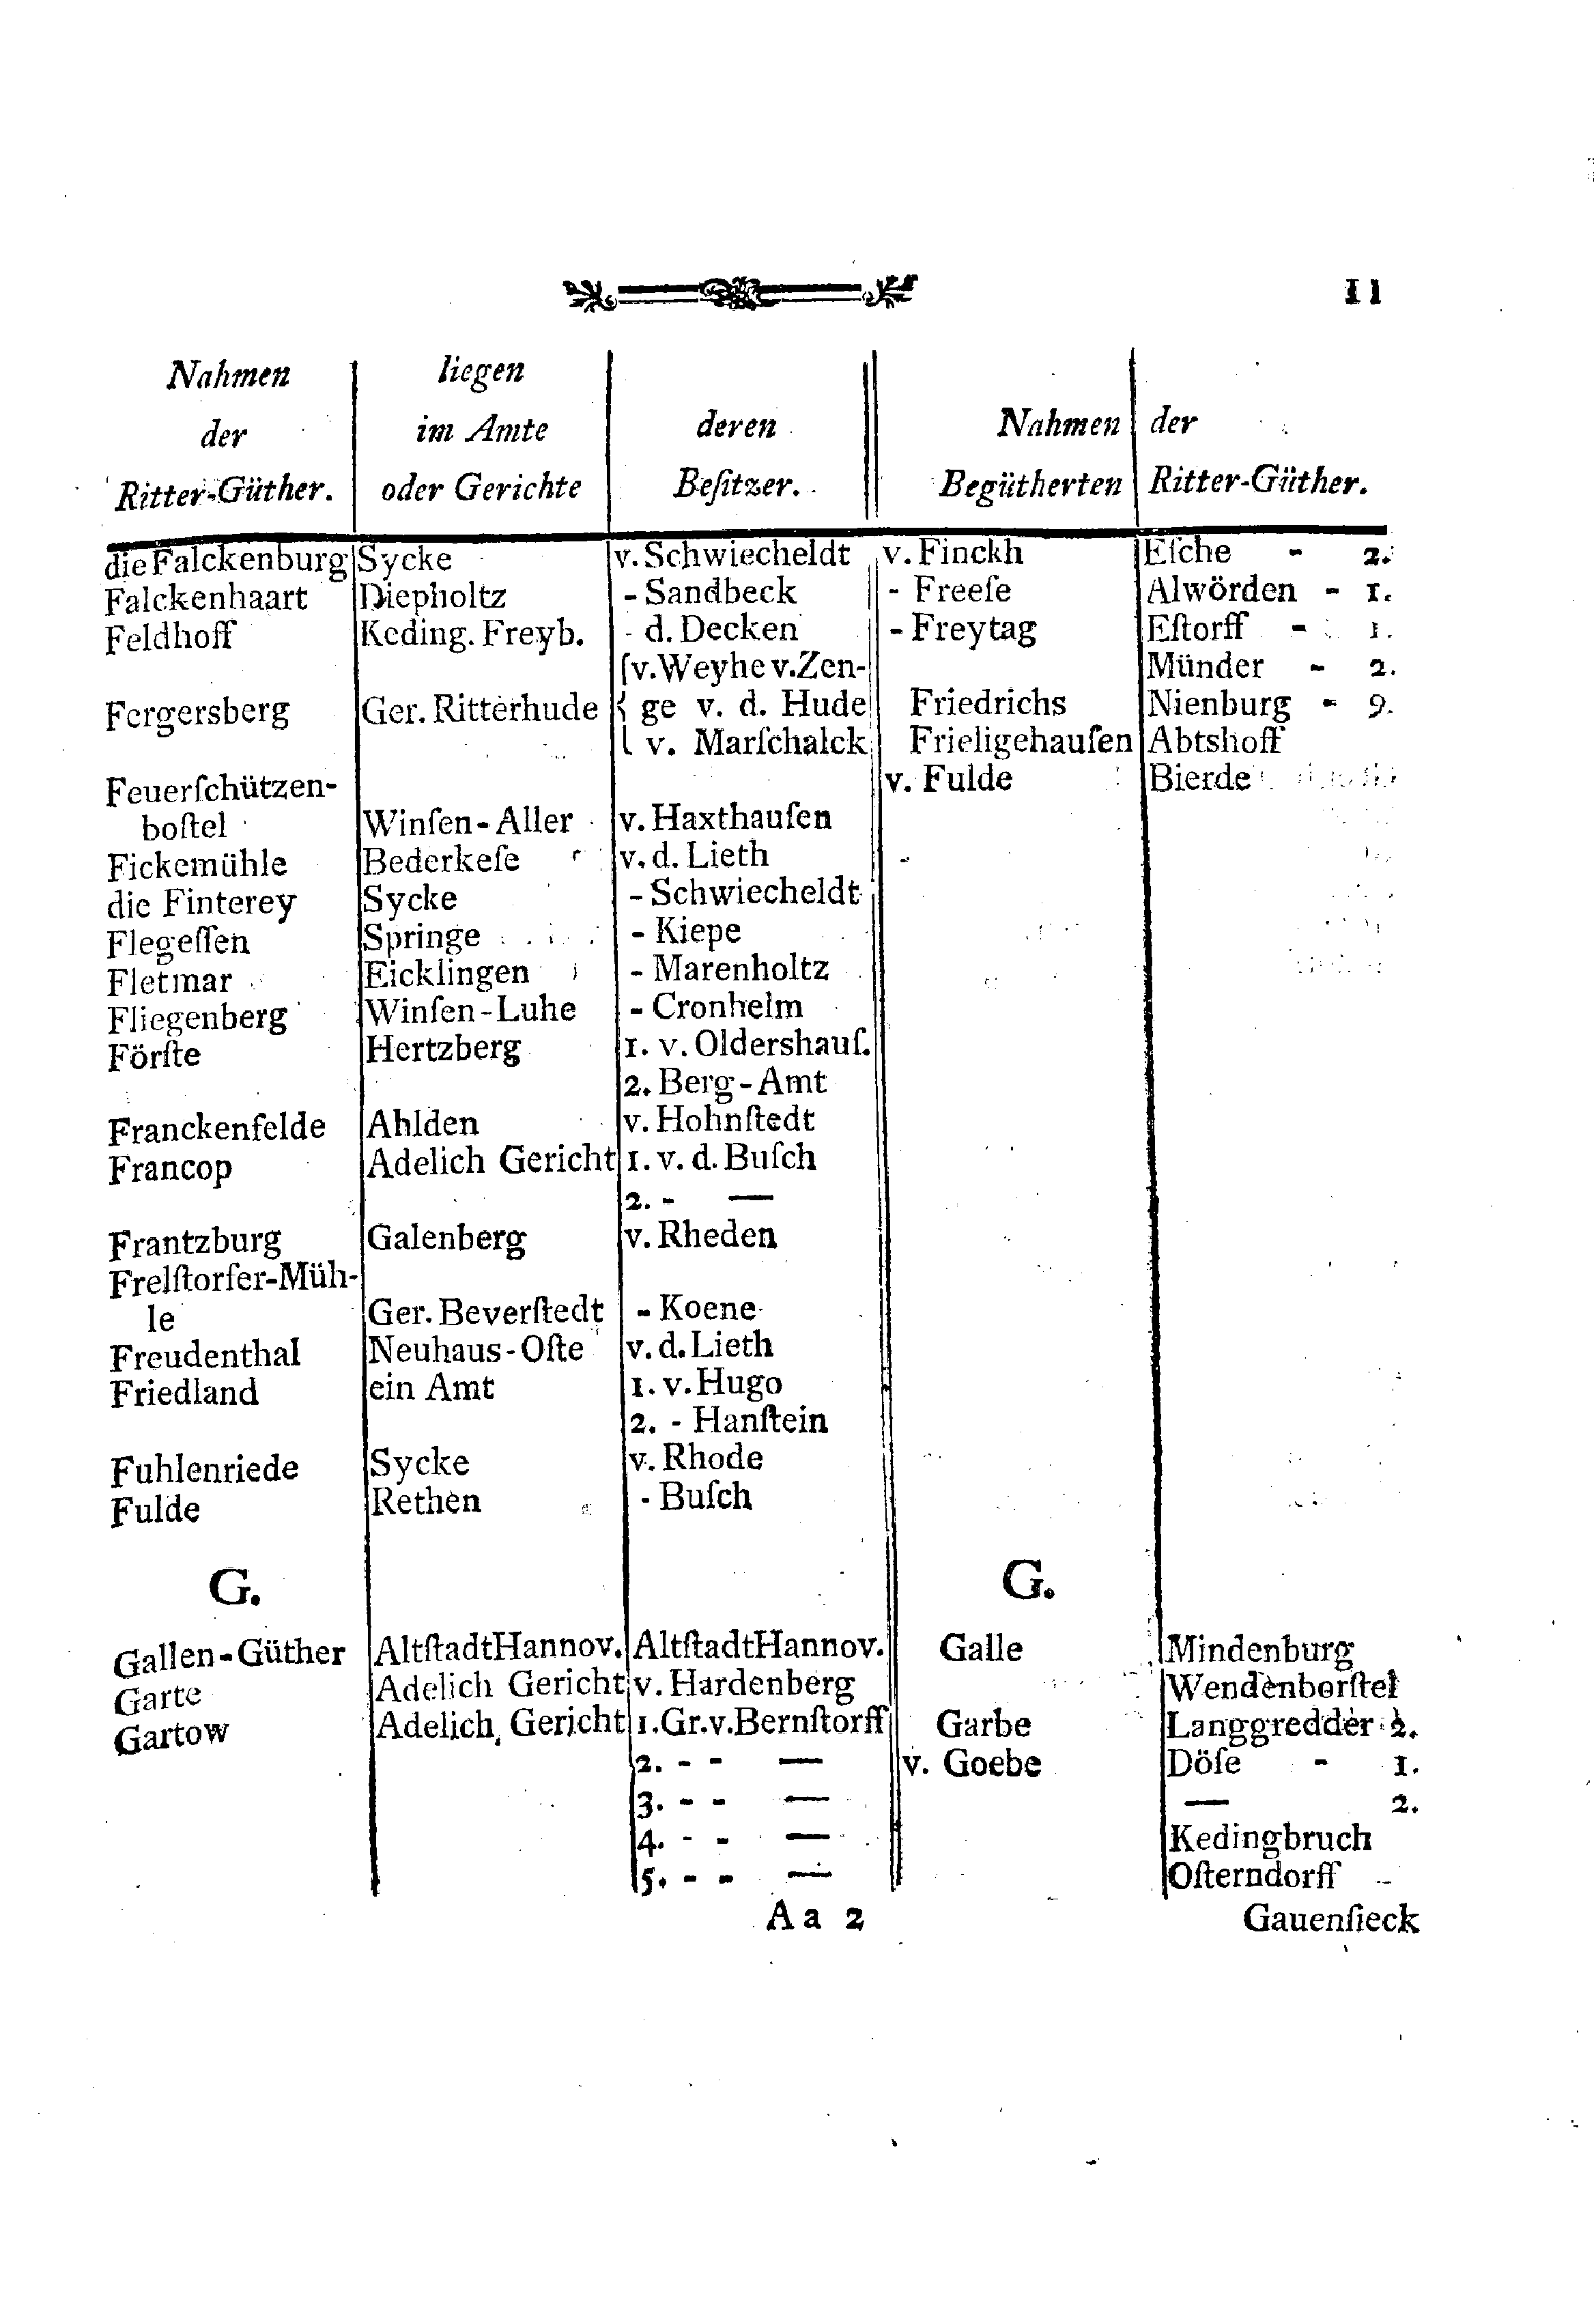 11
Nahmen der Ritter-Güther. | liegen im Amte oder Gerichte | deren Beſitzer. | Nahmen Begütherten | der Ritter-Güther.
die Falckenburg | Sycke | v. Schwiecheldt | v. Finckh | Eſche - 2.
Falckenhaart | Diepholtz | - Sandbeck | - Freeſe | Alwörden - 1.
Feldhoff | Keding. Freyb. | - d. Decken | - Freytag | Eſtorff - 1.
v. Weyhe v. Zen- | Münder - 2.
Fergersberg | Ger. Ritterhude | { ge v. d. Hude | Friedrichs | Nienburg - 9.
v. Marſchalck | Frieligehauſen | Abtshoff
Feuerſchützen- | v. Fulde | Bierde
boſtel | Winſen-Aller | v. Haxthauſen
Fickemühle | Bederkeſe | v. d. Lieth
die Finterey | Sycke | - Schwiecheldt
Flegeſſen | Springe | - Kiepe
Fletmar | Eicklingen | - Marenholtz
Fliegenberg | Winſen-Luhe | - Cronhelm
Förſte | Hertzberg | 1. v. Oldershauſ.
2. Berg-Amt
Franckenfelde | Ahlden | v. Hohnſtedt
Francop | Adelich Gericht | 1. v. d. Buſch
2. - —
Frantzburg | Galenberg | v. Rheden
Frelſtorfer-Müh-
le | Ger. Beverſtedt | - Koene
Freudenthal | Neuhaus-Oſte | v. d. Lieth
Friedland | ein Amt | 1. v. Hugo
2. - Hanſtein
Fuhlenriede | Sycke | v. Rhode
Fulde | Rethen | - Buſch
G. | G.
Gallen-Güther | Altſtadt Hannov. | Altſtadt Hannov. | Galle | Mindenburg
Garte | Adelich Gericht | v. Hardenberg | Wendenborſtel
Gartow | Adelich Gericht | 1. Gr. v. Bernſtorff | Garbe | Langgredder 2.
2. - - — | v. Goebe | Döſe - 1.
3. - - — | — 2.
4. - - — | Kedingbruch
5. - - — | Oſterndorff
Aa 2 | Gauenſieck